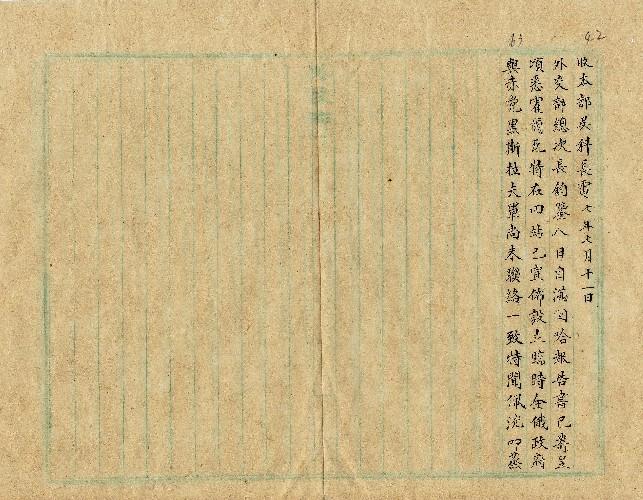 42
63
收本部吳科長電 七年七月十一日
外交部總次長鈞鑒八日自滿回哈報告書已寄呈
頃悉霍爾瓦特在四站已宣佈設立臨時全俄政府
與赤党黑斯拉夫軍尚未聯絡一致特聞佩洸叩蒸